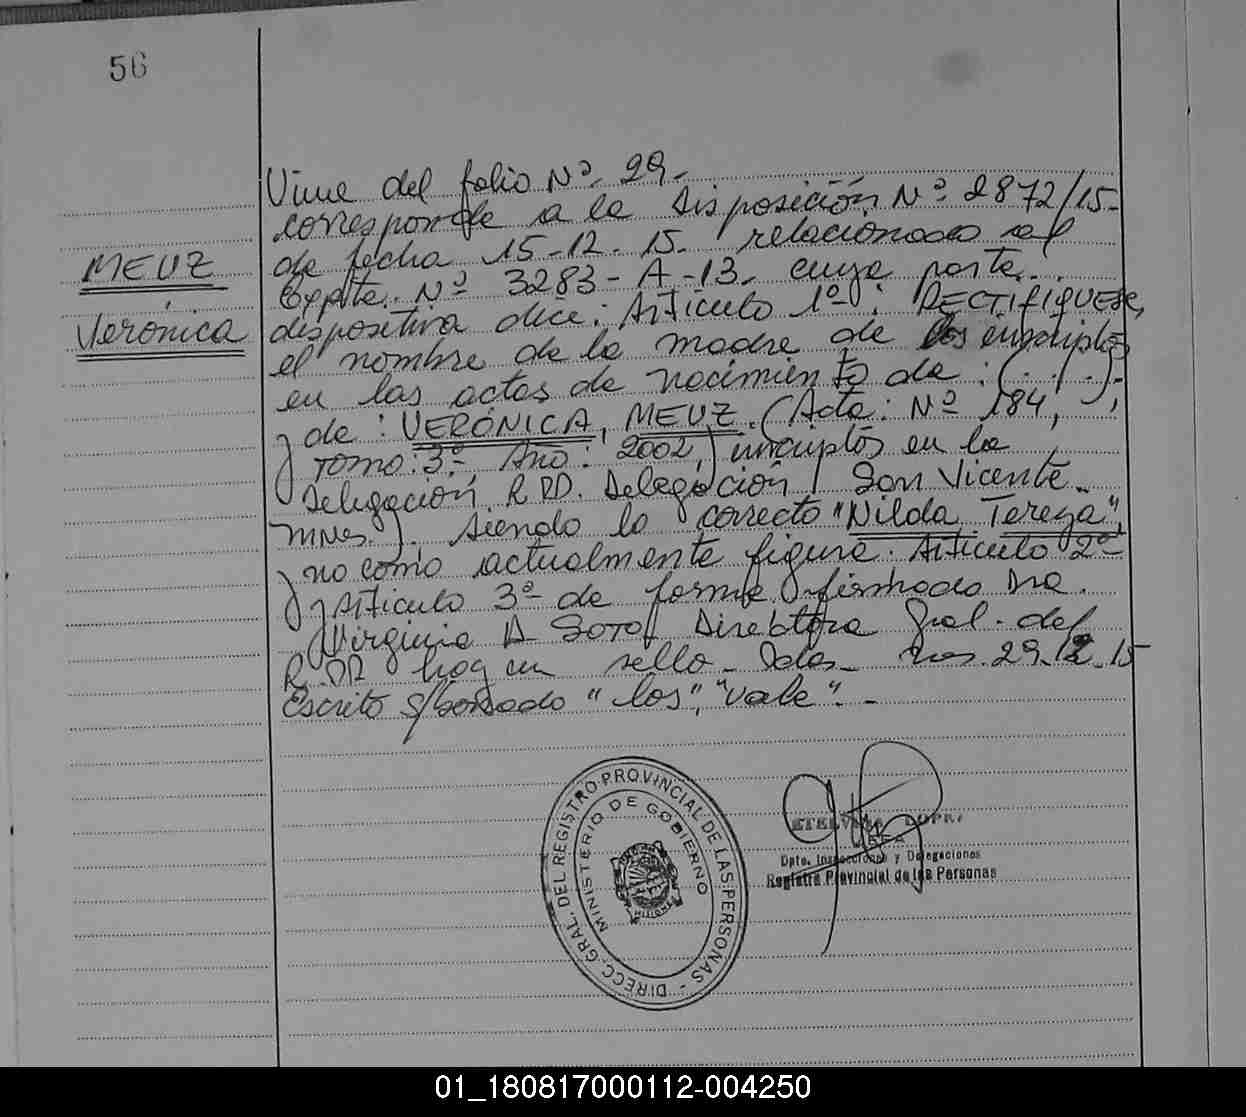 56
MEUZ
Verónica
Viene del folio Nº 29.-
corresponde a la disposición Nº 2872/15-
de fecha 15-12-15. relacionado al
Expte. Nº 3283-A-13- cuya parte
dispositiva dice: Artículo 1º: RECTIFIQUESE,
el nombre de la madre de los inscriptos
en las actas de nacimiento de: (././).-
y de: VERÓNICA, MEUZ. (Acta: Nº 184,
Tomo: 3º- Año: 2002,) inscriptos en la
Delegación R.P.P. Delegación San Vicente
Mnes.). siendo lo correcto "Nilda Tereza",
y no como actualmente figura. Artículo 2º-
y Artículo 3º- de forma firmado Dra.
Virginia A SOTO Directora Gral. del
R.P.P. hay un sello - Pdas - Mnes 29-12-15
Escrito s/borrado "los", "vale".-
DIRECC. GRAL. DEL REGISTRO PROVINCIAL DE LAS PERSONAS -
MINISTERIO DE GOBIERNO
MISIONES
Dpto. Inspecciones y Delegaciones
Registro Provincial de las Personas
01_180817000112-004250